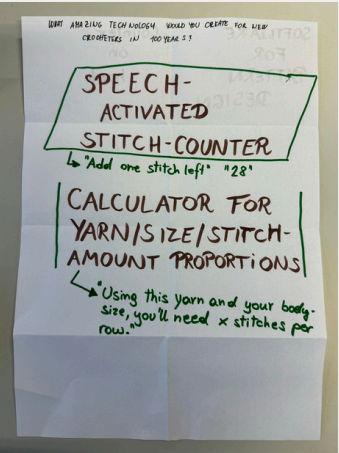 WHAT AMAZING TECHNOLOGY WOULD YOU CREATE FOR NEW
CROCHETERS IN 100 YEARS?
SPEECH-
ACTIVATED
STITCH-COUNTER
"Add one stitch left" "28"
CALCULATOR FOR
YARN/SIZE/STITCH-
AMOUNT PROPORTIONS
"Using this yarn and your body-
size, you'll need x stitches per
row."